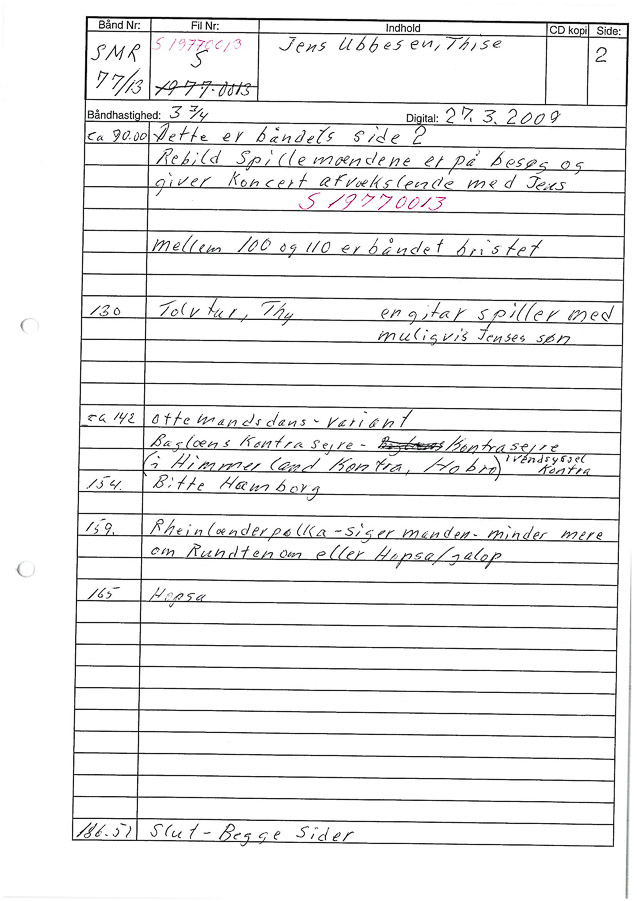 Bånd Nr: Fil Nr: Indhold CD kopi Side:
SMR 77/13 S 19770013 S 1977-0013 Jens Ubbesen, Thise 2
Båndhastighed: 3 3/4 Digital: 27.3.2009
ca 90.00 Dette er båndets side 2
Rebild Spillemændene er på besøg og
giver koncert afvekslende med Jens
S 19770013
mellem 100 og 110 er båndet bristet
130 Tolvtur, Thy en gitar spiller med
muligvis Jenses søn
ca 142 ottemandsdans - variant
Baglæns Kontrasejre - Baglæns Kontrasejre
(i Himmerland Kontra, Hobro) i Vendsyssel Kontra
154. Bitte Hamborg
159. Rheinlænderpolka - siger manden - minder mere
om Rundtenom eller Hopsa/galop
165 Hopsa
186.51 Slut - Begge Sider